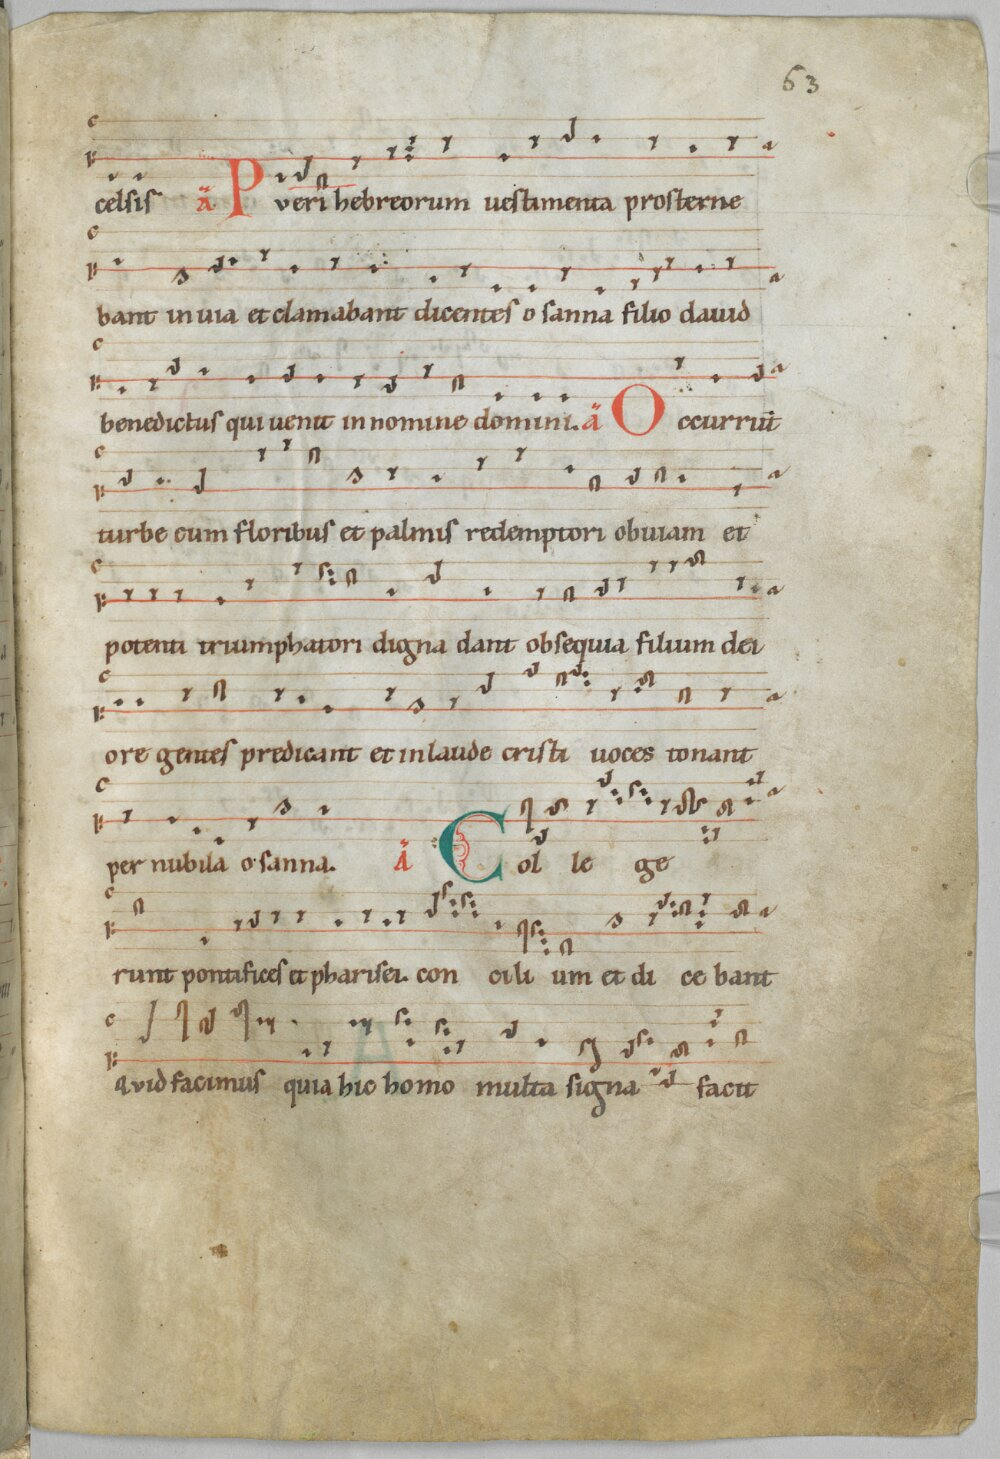 63
celsis a Pueri hebreorum uestimenta prosterne
bant in uia et clamabant dicentes o sanna filio dauid
benedictus qui uenit in nomine domini. a Occurrunt
turbe cum floribus et palmis redemptori obuiam et
potenti triumphatori digna dant obsequia filium dei
ore gentes predicant et in laude cristi uoces tonant
per nubila o sanna. a Col le ge
runt pontifices et pharisei. con cili um et di ce bant
Quid facimus quia hic homo multa signa facit